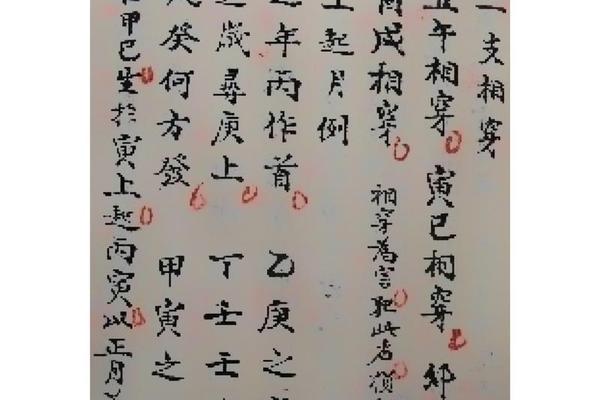 支相穿
丑午相穿 寅巳相穿 卯
酉戌相穿 相穿為害犯此者損
上起月例
之年丙作首 乙庚之
之歲尋庚上 丁壬壬
癸何方發 甲寅之
甲巳生於寅上起丙寅以正月